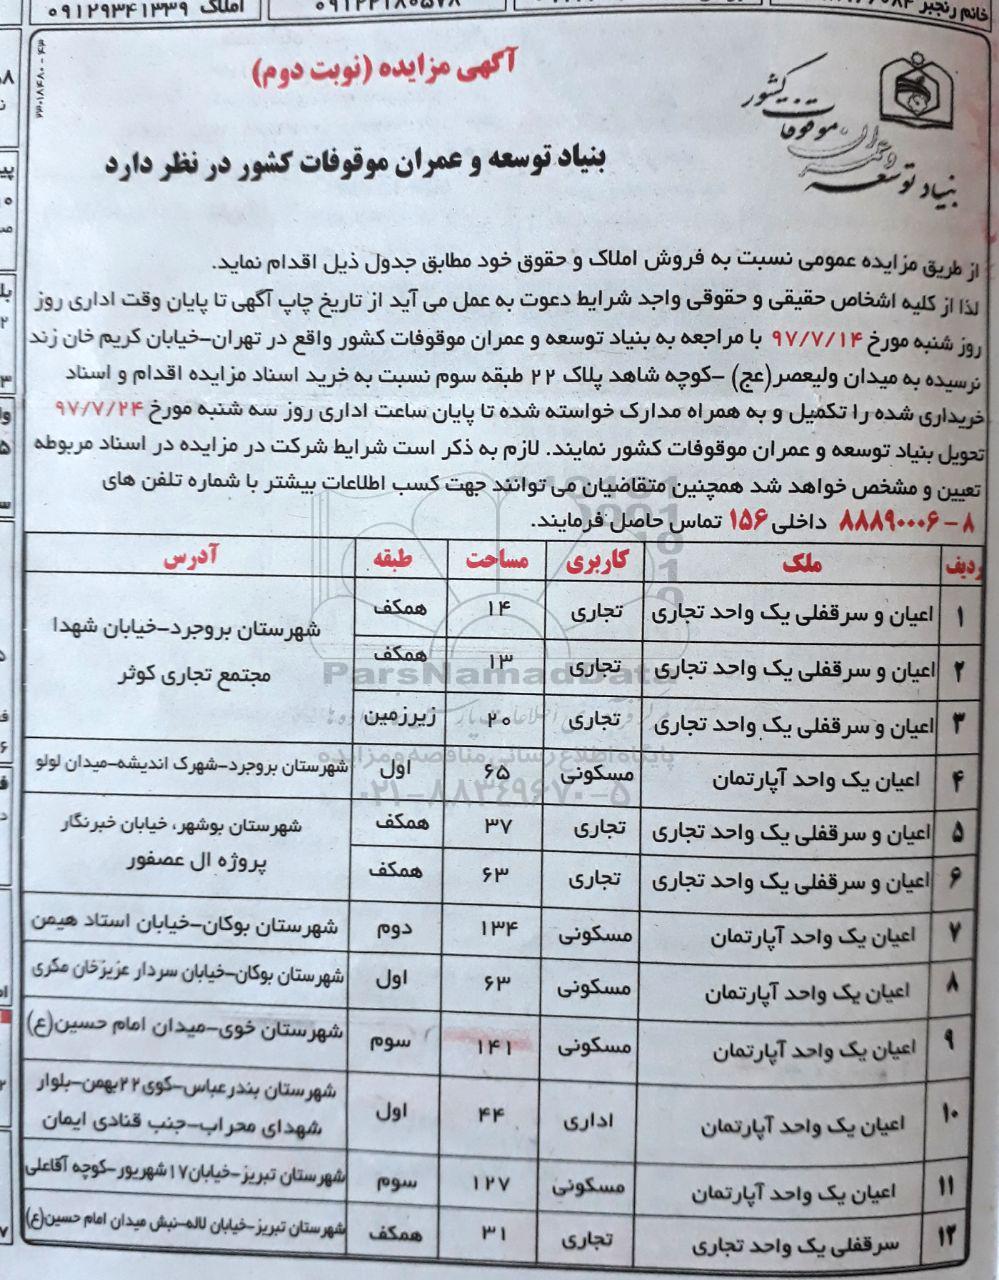 خانم رنجبر
املاک ۰۹۱۲۹۳۴۱۳۳۹
آگهی مزایده (نوبت دوم)
بنیاد توسعه و عمران موقوفات کشور
بنیاد توسعه و عمران موقوفات کشور در نظر دارد
از طریق مزایده عمومی نسبت به فروش املاک و حقوق خود مطابق جدول ذیل اقدام نماید.
لذا از کلیه اشخاص حقیقی و حقوقی واجد شرایط دعوت به عمل می آید از تاریخ چاپ آگهی تا پایان وقت اداری روز
روز شنبه مورخ ۹۷/۷/۱۴ با مراجعه به بنیاد توسعه و عمران موقوفات کشور واقع در تهران-خیابان کریم خان زند
نرسیده به میدان ولیعصر(عج) -کوچه شاهد پلاک ۲۲ طبقه سوم نسبت به خرید اسناد مزایده اقدام و اسناد
خریداری شده را تکمیل و به همراه مدارک خواسته شده تا پایان ساعت اداری روز سه شنبه مورخ ۹۷/۷/۲۴
تحویل بنیاد توسعه و عمران موقوفات کشور نمایند. لازم به ذکر است شرایط شرکت در مزایده در اسناد مربوطه
تعیین و مشخص خواهد شد همچنین متقاضیان می توانند جهت کسب اطلاعات بیشتر با شماره تلفن های
۸۸۸۹۰۰۰۶-۸ داخلی ۱۵۶ تماس حاصل فرمایند.
ردیف ملک کاربری مساحت طبقه آدرس
۱ اعیان و سرقفلی یک واحد تجاری تجاری ۱۴ همکف
شهرستان بروجرد-خیابان شهدا
۲ اعیان و سرقفلی یک واحد تجاری تجاری ۱۳ همکف
مجتمع تجاری کوثر
۳ اعیان و سرقفلی یک واحد تجاری تجاری ۲۰ زیرزمین
۴ اعیان یک واحد آپارتمان مسکونی ۶۵ اول شهرستان بروجرد-شهرک اندیشه-میدان لولو
۵ اعیان و سرقفلی یک واحد تجاری تجاری ۳۷ همکف شهرستان بوشهر، خیابان خبرنگار
پروژه ال عصفور
۶ اعیان و سرقفلی یک واحد تجاری تجاری ۶۳ همکف
۷ اعیان یک واحد آپارتمان مسکونی ۱۳۴ دوم شهرستان بوکان-خیابان استاد هیمن
۸ اعیان یک واحد آپارتمان مسکونی ۶۳ اول شهرستان بوکان-خیابان سردار عزیزخان مکری
۹ اعیان یک واحد آپارتمان مسکونی ۱۴۱ سوم شهرستان خوی-میدان امام حسین(ع)
۱۰ اعیان یک واحد آپارتمان اداری ۴۴ اول شهرستان بندرعباس-کوی۲۲بهمن-بلوار
شهدای محراب-جنب قنادی ایمان
۱۱ اعیان یک واحد آپارتمان مسکونی ۱۲۷ سوم شهرستان تبریز-خیابان۱۷شهریور-کوچه آقاعلی
۱۲ سرقفلی یک واحد تجاری تجاری ۳۱ همکف شهرستان تبریز-خیابان لاله-نبش میدان امام حسین(ع)
ParsNamadData
پایگاه اطلاع رسانی مناقصه و مزایده
۰۲۱-۸۸۳۴۹۶۷۰-۵